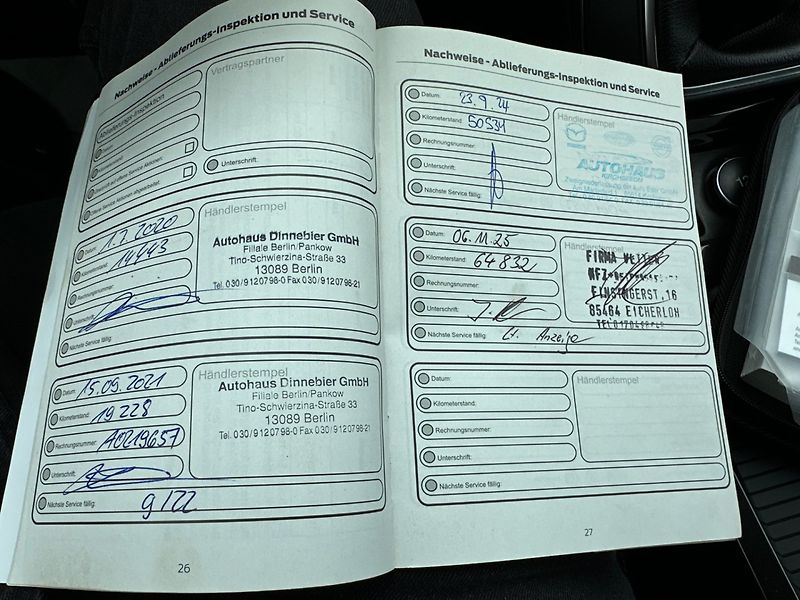 Nachweise - Ablieferungs-Inspektion und Service
Ablieferungs-Inspektion
Vertragspartner
Unterschrift:
Händlerstempel
Datum: 1.7.2020
Kilometerstand: 14443
Rechnungsnummer:
Unterschrift:
Nächste Service fällig:
Autohaus Dinnebier GmbH
Filiale Berlin/Pankow
Tino-Schwierzina-Straße 33
13089 Berlin
Tel. 030/9120798-0 Fax 030/9120798-21
Händlerstempel
Datum: 15.09.2021
Kilometerstand: 19228
Rechnungsnummer: A0219657
Unterschrift:
Nächste Service fällig: 9/22
Autohaus Dinnebier GmbH
Filiale Berlin/Pankow
Tino-Schwierzina-Straße 33
13089 Berlin
Tel. 030/9120798-0 Fax 030/9120798-21
26
Nachweise - Ablieferungs-Inspektion und Service
Datum: 23.9.24
Kilometerstand: 50534
Rechnungsnummer:
Unterschrift:
Nächste Service fällig:
Händlerstempel
AUTOHAUS
Datum: 06.11.25
Kilometerstand: 64832
Rechnungsnummer:
Unterschrift:
Nächste Service fällig: Lt. Anzeige
Händlerstempel
FIRMA
EINSINGERST.16
85464 EICHERLOH
Datum:
Kilometerstand:
Rechnungsnummer:
Unterschrift:
Nächste Service fällig:
Händlerstempel
27